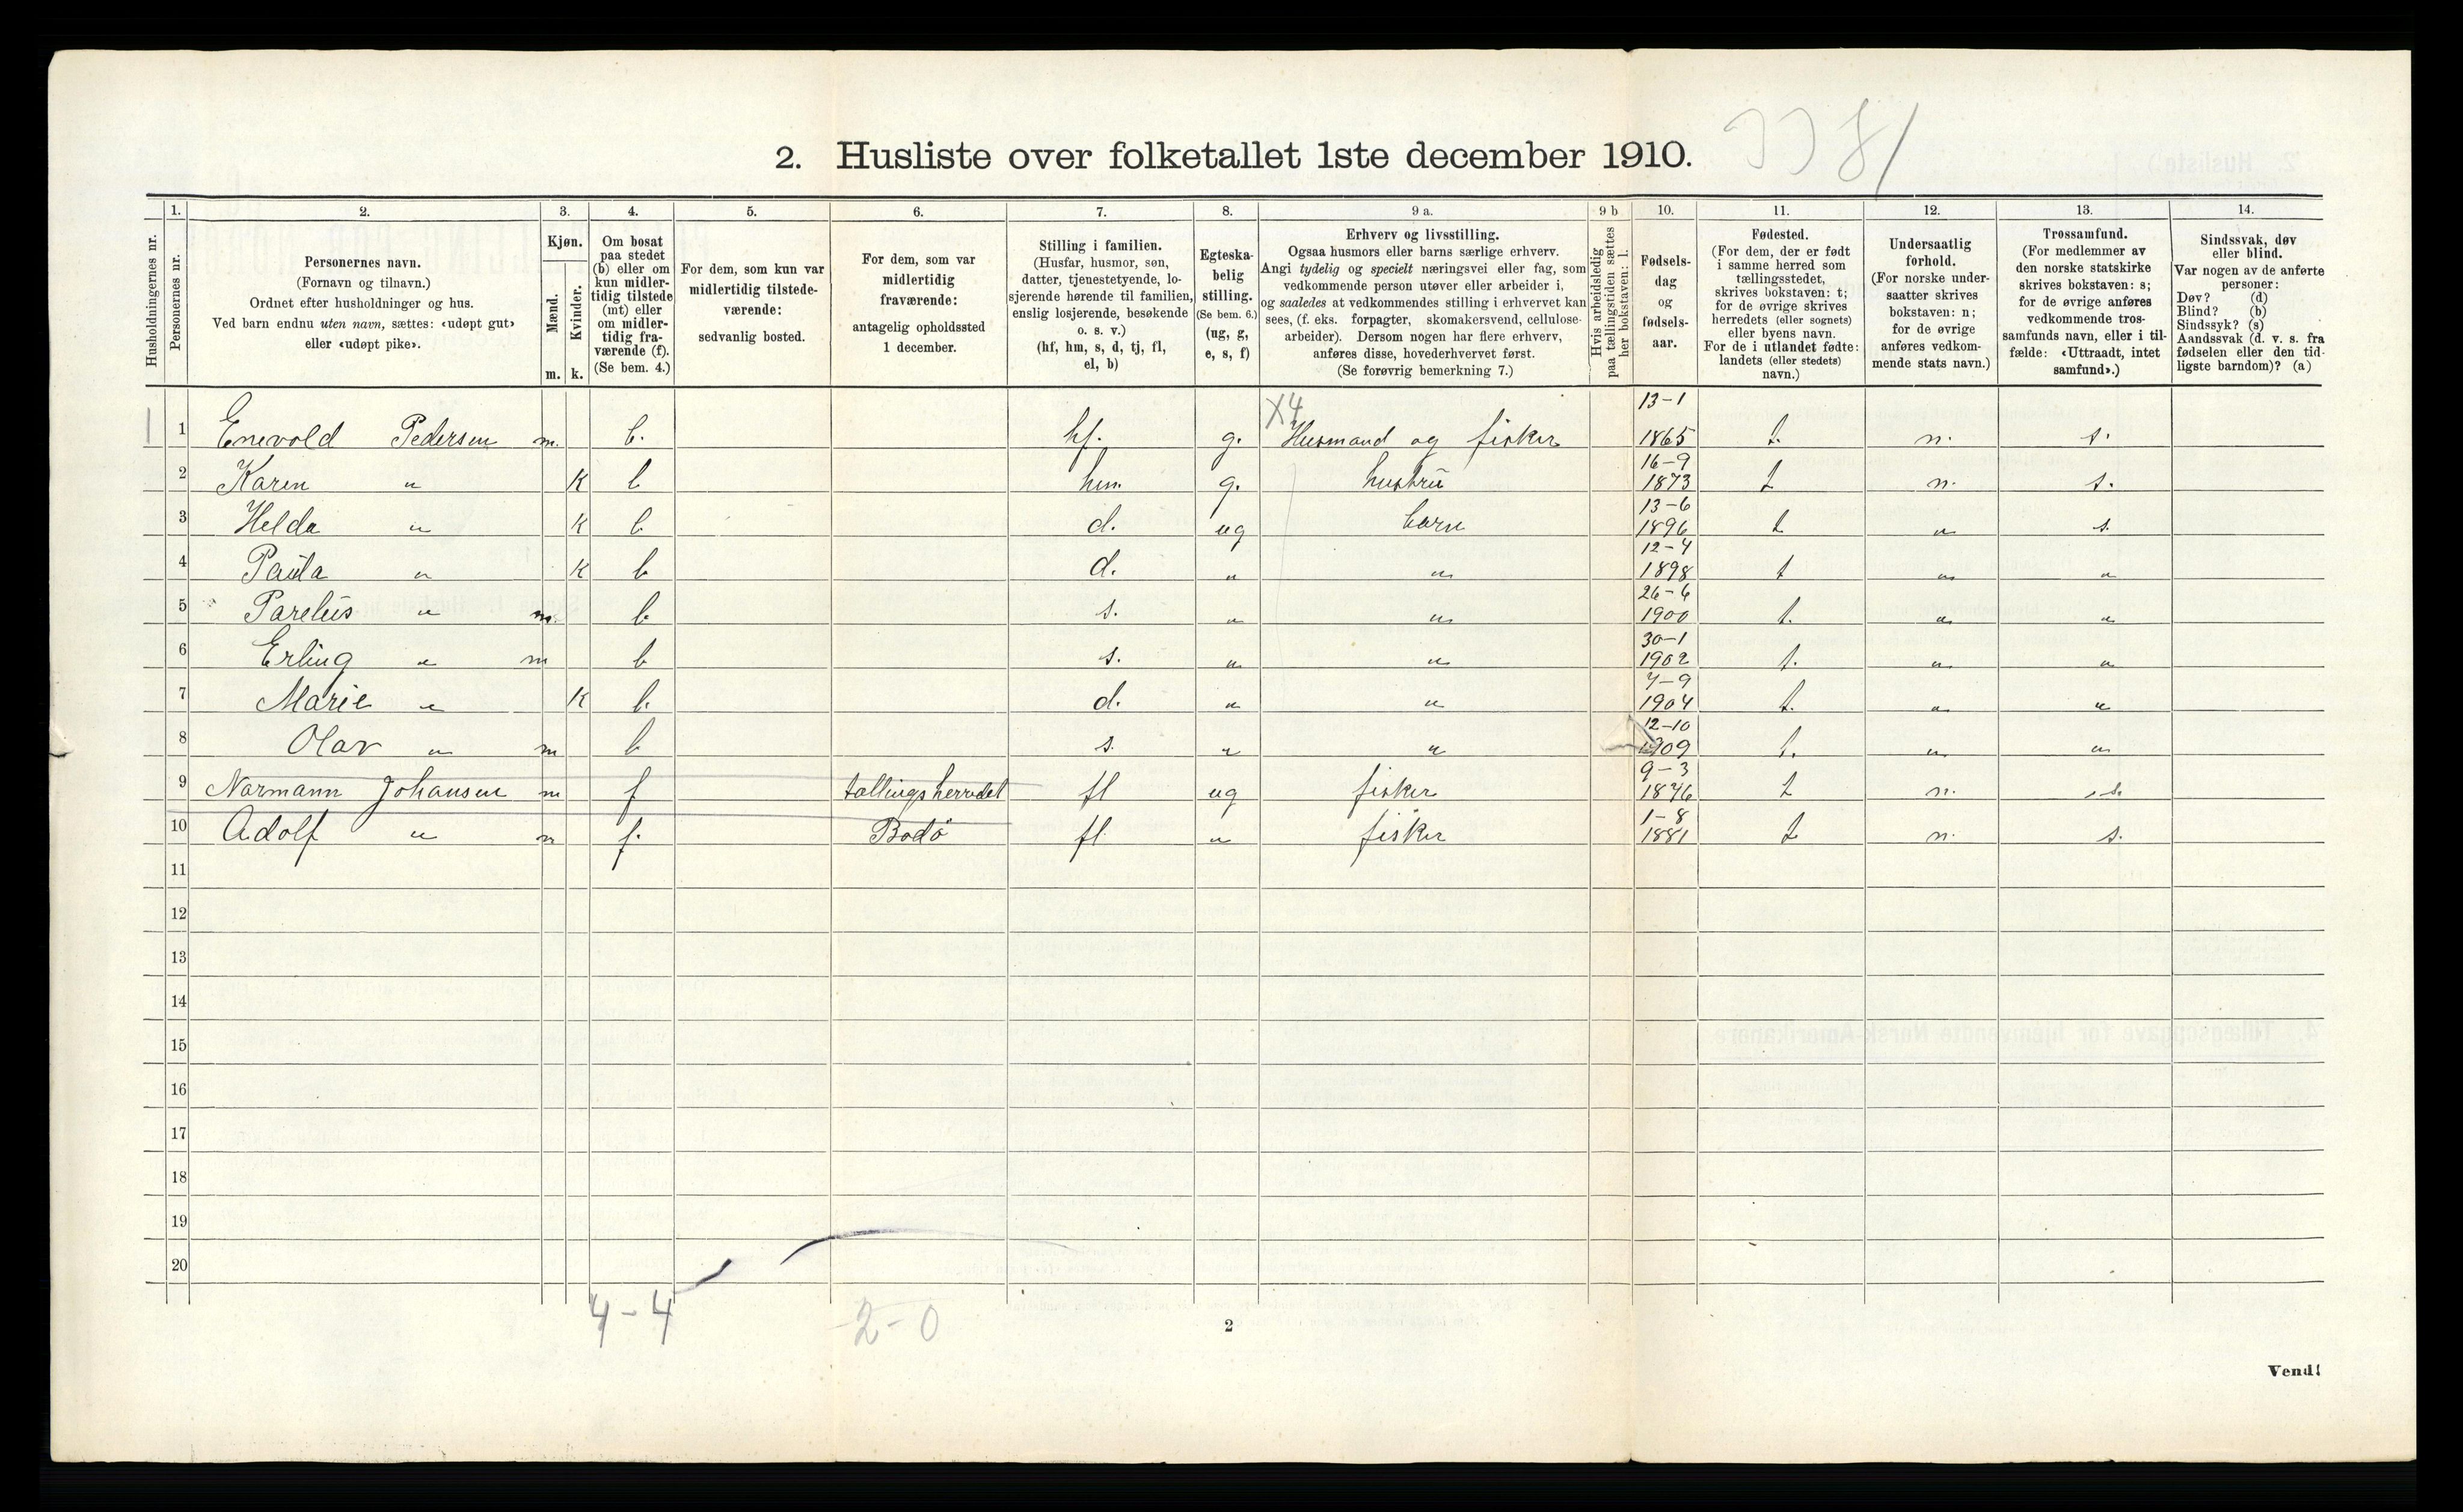 2. Husliste over folketallet 1ste december 1910.
3381
1. 2. 3. 4. 5. 6. 7. 8. 9 a. 9 b 10. 11. 12. 13. 14.
Husholdningernes nr.
Personernes nr.
Personernes navn.
(Fornavn og tilnavn.)
Ordnet efter husholdninger og hus.
Ved barn endnu uten navn, sættes: «udøpt gut»
eller «udøpt pike».
Kjøn.
Mænd.
Kvinder.
m. k.
Om bosat
paa stedet
(b) eller om
kun midler-
tidig tilstede
(mt) eller
om midler-
tidig fra-
værende (f).
(Se bem. 4.)
For dem, som kun var
midlertidig tilstede-
værende:
sedvanlig bosted.
For dem, som var
midlertidig
fraværende:
antagelig opholdssted
1 december.
Stilling i familien.
(Husfar, husmor, søn,
datter, tjenestetyende, lo-
sjerende hørende til familien,
enslig losjerende, besøkende
o. s. v.)
(hf, hm, s, d, tj, fl,
el, b)
Egteska-
belig
stilling.
(Se bem. 6.)
(ug, g,
e, s, f)
Erhverv og livsstilling.
Ogsaa husmors eller barns særlige erhverv.
Angi tydelig og specielt næringsvei eller fag, som
vedkommende person utøver eller arbeider i,
og saaledes at vedkommendes stilling i erhvervet kan
sees, (f. eks. forpagter, skomakersvend, cellulose-
arbeider). Dersom nogen har flere erhverv,
anføres disse, hovederhvervet først.
(Se forøvrig bemerkning 7.)
Hvis arbeidsledig
paa tællingstiden sættes
her bokstaven: l.
Fødsels-
dag
og
fødsels-
aar.
Fødested.
(For dem, der er født
i samme herred som
tællingsstedet,
skrives bokstaven: t;
for de øvrige skrives
herredets (eller sognets)
eller byens navn.
For de i utlandet fødte:
landets (eller stedets)
navn.)
Undersaatlig
forhold.
(For norske under-
saatter skrives
bokstaven: n;
for de øvrige
anføres vedkom-
mende stats navn.)
Trossamfund.
(For medlemmer av
den norske statskirke
skrives bokstaven: s;
for de øvrige anføres
vedkommende tros-
samfunds navn, eller i til-
fælde: «Uttraadt, intet
samfund».)
Sindssvak, døv
eller blind.
Var nogen av de anførte
personer:
Døv? (d)
Blind? (b)
Sindssyk? (s)
Aandssvak (d. v. s. fra
fødselen eller den tid-
ligste barndom)? (a)
1 1 Enevold Pedersen m. b. hf. g. X4 Husmand og fisker 13-1 1865 t. n. s.
2 Karen " K b hm. g. hustru 16-9 1873 t n. s.
3 Helda " K b d. ug barn 13-6 1896 t " s.
4 Paula " K b d. " " 12-4 1898 t " "
5 Parelius " m. b. s. " " 26-6 1900 t. " "
6 Erling " m b s. " " 30-1 1902 t. " "
7 Marie " K b. d. " " 7-9 1904 t. " "
8 Olav " m b s. " " 12-10 1909 t. " "
9 Normann Johansen m f tællingsherredet fl ug fisker 9-3 1876 t n. s.
10 Adolf " m f. Bodö fl " fisker 1-8 1881 t n. s.
11
12
13
14
15
16
17
18
19
20
4-4 2-0
2
Vend!